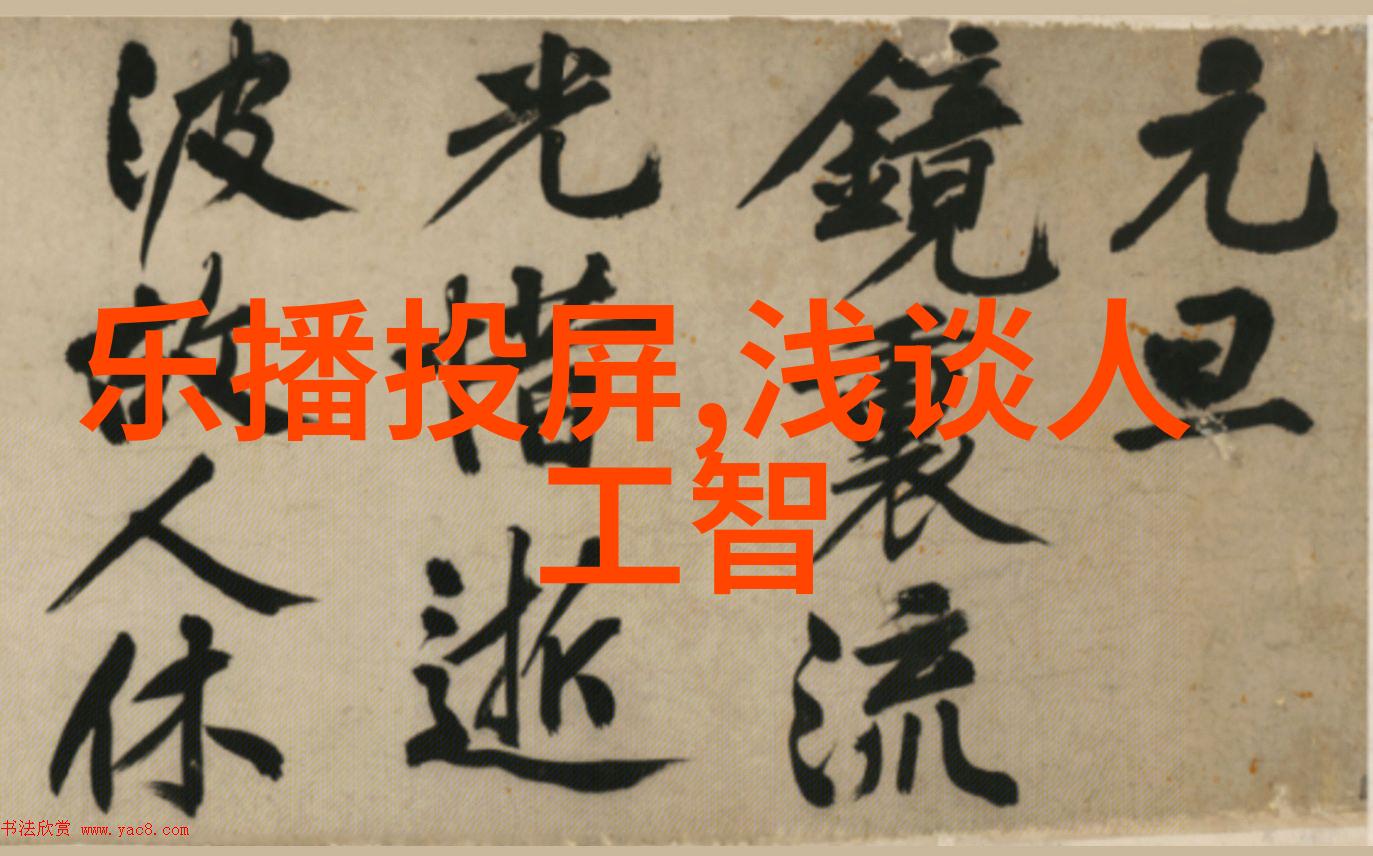 乐播投屏,浅谈人
工智
元旦
鏡裏流
光惜逝
波故人休
书法欣赏 www.yac8.com